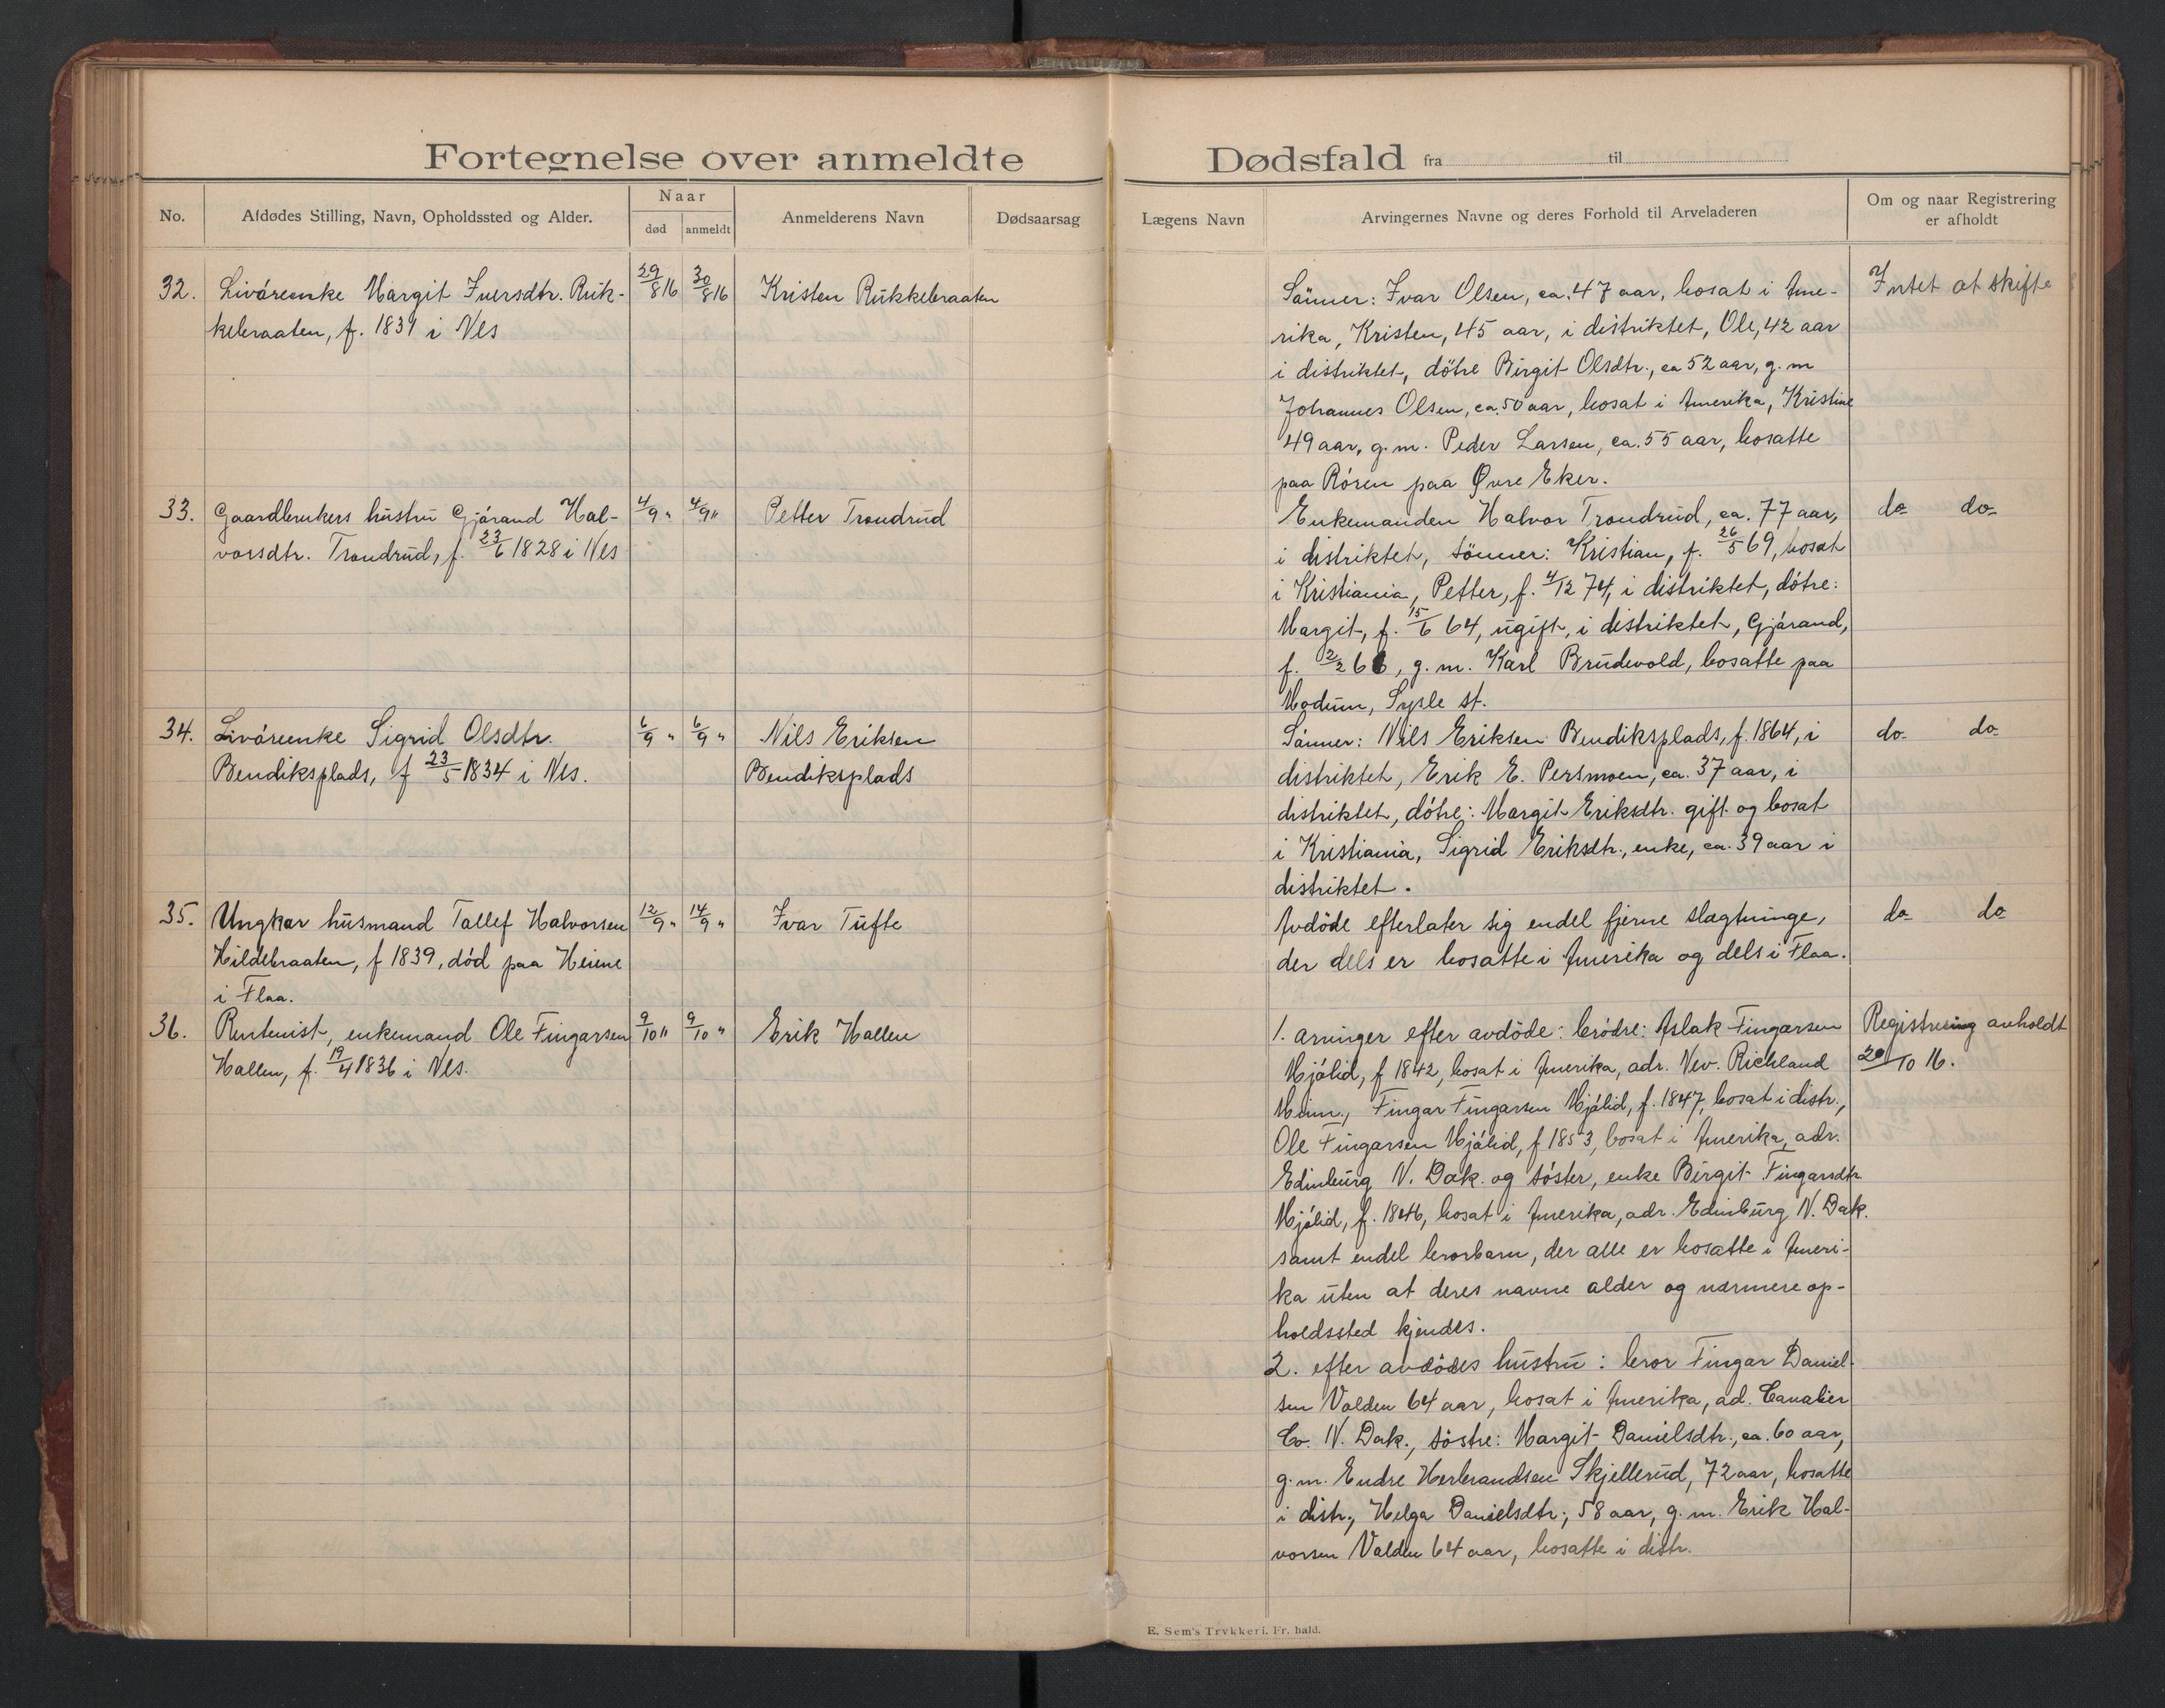 Fortegnelse over anmeldte Dødsfald fra til
No.
Afdødes Stilling, Navn, Opholdssted og Alder.
Naar
død
anmeldt
Anmelderens Navn
Dødsaarsag
Lægens Navn
Arvingernes Navne og deres Forhold til Arveladeren
Om og naar Registrering
er afholdt
32.
Livöreenke Margit Iversdtr. Ruk-
kebraaten, f. 1839 i Nes
29/8 16
30/8 16
Kristen Rukkebraaten
Sönner: Ivar Olsen, ca. 47 aar, bosat i Ame-
rika, Kristen, 45 aar, i distriktet, Ole, 42 aar
i distriktet, dötre Birgit Olsdtr., ca 52 aar, g. m
Johannes Olsen, ca. 50 aar, bosat i Amerika, Kristine
49 aar, g. m. Peder Larsen, ca. 55 aar, bosatte
paa Rören paa Øvre Eker.
Intet at skifte
33.
Gaardbrukers hustru Gjörand Hal-
vorsdtr. Trondrud, f. 23/6 1828 i Nes
4/9 "
4/9 "
Petter Trondrud
Enkemanden Halvor Trondrud, ca. 77 aar,
i distriktet, sönner: Kristian, f. 26/5 69, bosat
i Kristiania, Petter, f. 4/12 74, i distriktet, dötre:
Margit, f. 15/6 64, ugift, i distriktet, Gjörand,
f. 2/2 66, g. m. Karl Brudevold, bosatte paa
Modum, Sysle st.
do do
34.
Livöreenke Sigrid Olsdtr.
Bendiksplads, f 23/5 1834 i Nes.
6/9 "
6/9 "
Nils Eriksen
Bendiksplads
Sönner: Nils Eriksen Bendiksplads, f. 1864, i
distriktet, Erik E. Persmoen, ca. 37 aar, i
distriktet, dötre: Margit Eriksdtr. gift og bosat
i Kristiania, Sigrid Eriksdtr., enke, ca. 39 aar i
distriktet.
do do
35.
Ungkar husmand Tollef Halvorsen
Hildebraaten, f 1839, död paa Heiene
i Flaa.
12/9 "
14/9 "
Ivar Tufte
Avdöde efterlater sig endel fjerne slægtninge,
der dels er bosatte i Amerika og dels i Flaa.
do do
36.
Rentenist, enkemand Ole Fingarsen
Hallen, f. 19/4 1836 i Nes.
9/10 "
9/10 "
Erik Hallen
1. arvinger efter avdöde: brödre: Aslak Fingarsen
Mjölid, f 1842, bosat i Amerika, adr. Nev. Richland
Minn., Fingar Fingarsen Mjölid, f. 1847, bosat i distr.,
Ole Fingarsen Mjölid, f 1853, bosat i Amerika, adr.
Edinburg N. Dak. og söster, enke Birgit Fingarsdtr.
Mjölid, f. 1846, bosat i Amerika, adr. Edinburg N. Dak.
samt endel brorbarn, der alle er bosatte i Ameri-
ka uten at deres navne alder og nærmere op-
holdssted kjendes.
2. efter avdödes hustru: bror Fingar Daniel-
sen Valden 64 aar, bosat i Amerika, ad. Cavalier
Co. N. Dak., söstre: Margit Danielsdtr., ca. 60 aar,
g. m. Endre Herbrandsen Skjellerud, 72 aar, bosatte
i distr., Helga Danielsdtr., 58 aar, g. m. Erik Hal-
vorsen Valden 64 aar, bosatte i distr.
Registrering avholdt
20/10 16.
E. Sem's Trykkeri. Fr. hald.